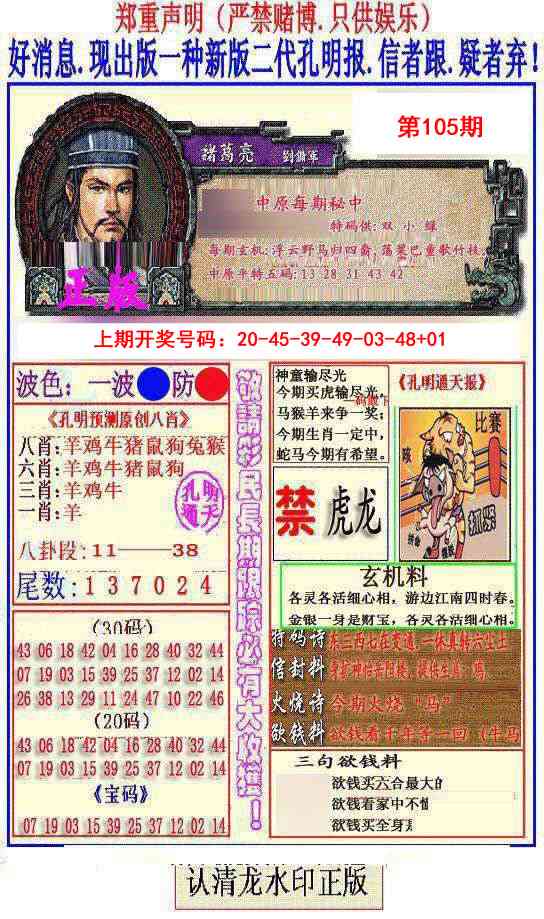 郑重声明（严禁赌博.只供娱乐）
好消息.现出版一种新版二代孔明报.信者跟.疑者弃！
諸葛亮 劉備軍
第105期
中原每期秘中
特码供:双 小 绿
每期玄机:浮云野马归四裔,荡桨巴童歌竹枝.
中原平特五码:13 28 31 43 42
正版
上期开奖号码：20-45-39-49-03-48+01
波色：一波 防
《孔明预测原创八肖》
八肖:羊鸡牛猪鼠狗兔猴
六肖:羊鸡牛猪鼠狗
三肖:羊鸡牛
一肖:羊
孔明
通天
八卦段:11——38
尾数:137024
(30码)
43 06 18 42 04 16 28 40 32 44
07 19 03 15 39 25 37 12 02 14
26 38 13 29 11 24 47 10 22 46
(20码)
43 06 18 42 04 16 28 40 32 44
07 19 03 15 39 25 37 12 02 14
《宝码》
07 19 03 15 39 25 37 12 02 14
敬請彩民長期跟踪必有大收獲！
神童输尽光
今期买虎输尽光,
马猴羊来争一奖;
今期生肖一定中,
蛇马今期有希望.
《孔明通天报》
比赛
抓紧
禁 虎龙
玄机料
各灵各活细心相，游边江南四时春。
金银一身是财宝，各灵各活细心相。
特码诗
信封料
火烧诗 今期火烧“马”
欲钱料 欲钱看千年等一回（牛马
三句欲钱料
欲钱买六合最大的
欲钱看家中不
欲钱买全身
认清龙水印正版